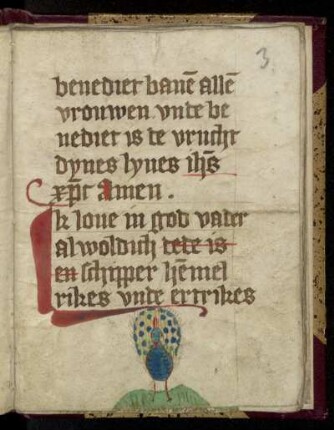 3
benediet bauē allē
vrouwen vnde be
nediet is de vrucht
dynes lyues ihs̄
xp̄c amen.
Ik loue in god vader
alwoldich dede is
en schipper hēmel
rikes vnde ertrikes